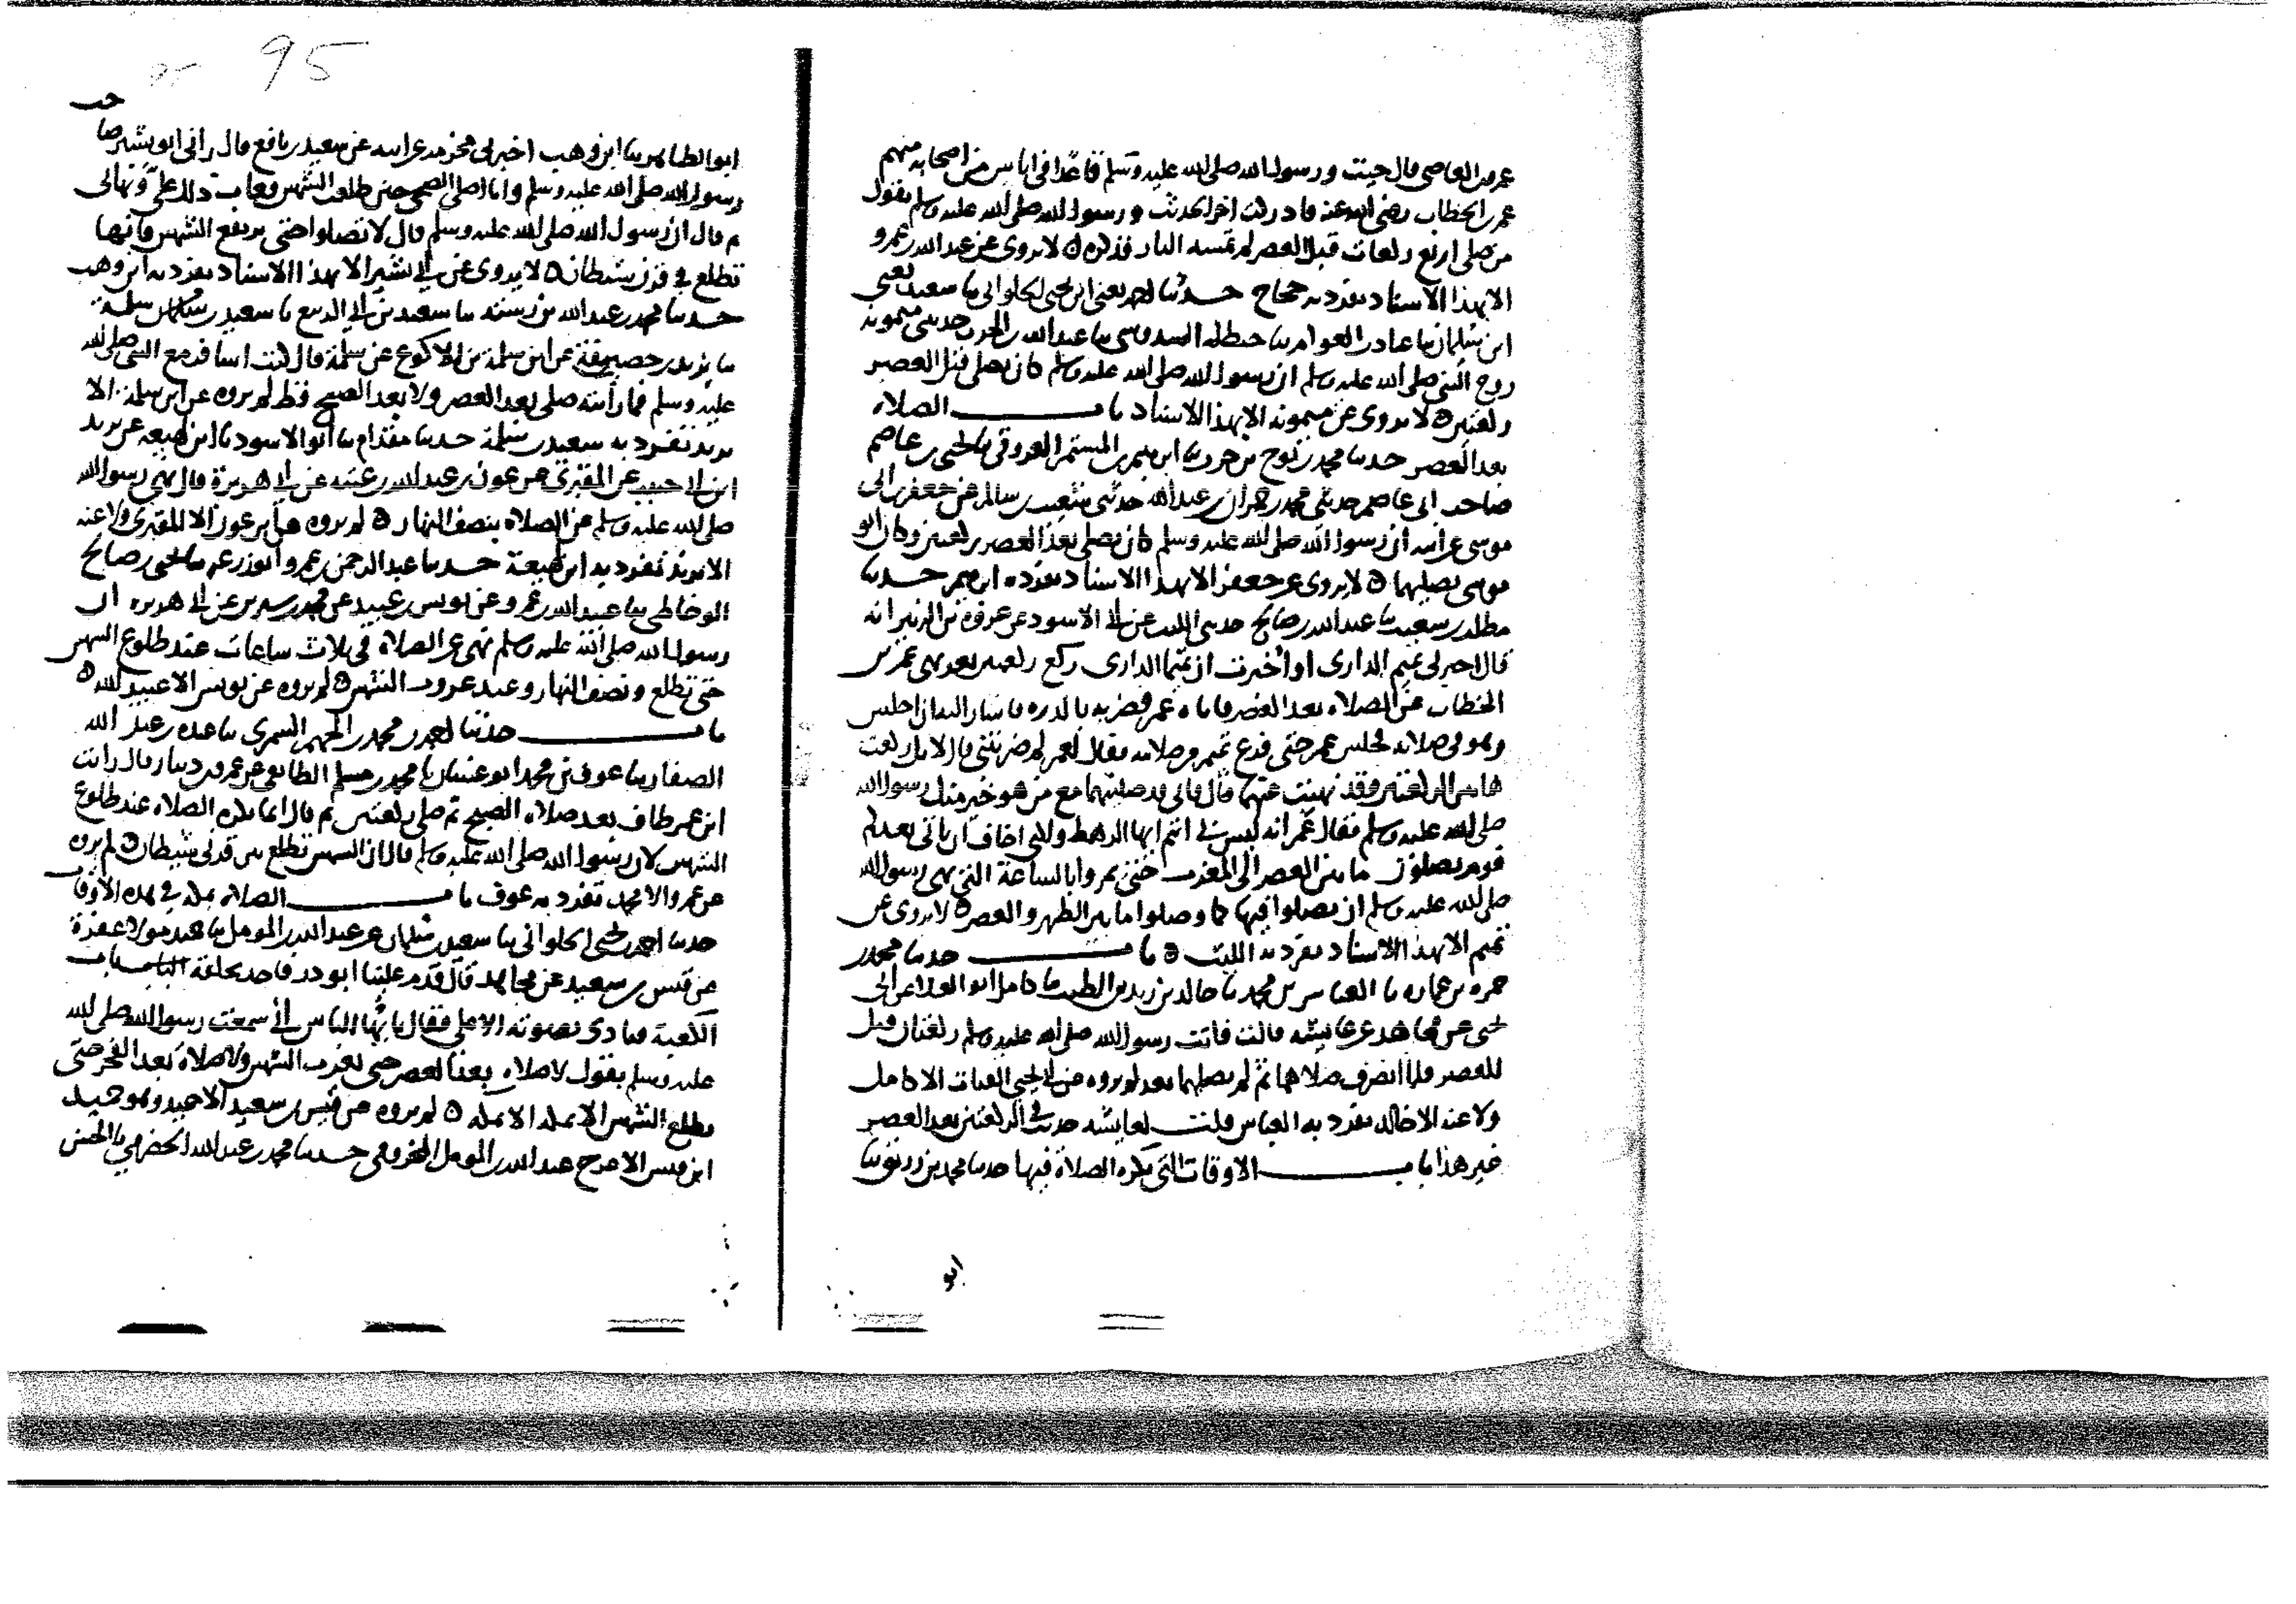 عمرو بن العاصي قال جيت ورسول الله صلى الله عليه وسلم قاعد في اناس من اصحابه منهم
عمر بن الخطاب رضي الله عنه فادركت اخر الحديث ورسول الله صلى الله عليه وسلم يقول
من صلى اربع ركعات قبل العصر لم تمسه النار فذكره ٥ لا يروى عن عبد الله بن عمرو
الا بهذا الاسناد تفرد به حجاج حدثنا احمد يعني ابن يحيى الحلواني ثنا سعيد يعني
ابن سليمان ثنا عباد بن العوام ثنا حنظلة السدوسي ثنا عبد الله بن الحرث حدثتني ميمونة
زوج النبي صلى الله عليه وسلم ان رسول الله صلى الله عليه وسلم كان يصلي قبل العصر
ركعتين ٥ لا يروى عن ميمونة الا بهذا الاسناد باب الصلاة
بعد العصر حدثنا محمد بن نوح بن حرب ثنا ابرهيم بن المستمر العروقي ثنا يحيى بن عاصم
صاحب ابي عاصم حدثني محمد بن حمران بن عبد الله حدثني شعيب بن سالم عن جعفر بن ابي
موسى عن ابيه ان رسول الله صلى الله عليه وسلم كان يصلي بعد العصر ركعتين وكان ابو
موسى يصليهما ٥ لا يروى عن جعفر الا بهذا الاسناد تفرد به ابرهيم حدثنا
مطلب بن سعيد ثنا عبد الله بن صالح حدثني الليث عن ابي الاسود عن عروة بن الزبير انه
قال اخبرني تميم الداري او اخبرت ان تميما الداري ركع ركعتين بعد نهي عمر بن
الخطاب عن الصلاة بعد العصر فاتاه عمر فضربه بالدرة فاشار اليه ان اجلس
وهو في صلاته فجلس عمر حتى فرغ تميم من صلاته فقال لعمر لم ضربتني قال لانك ركعت
هاتين الركعتين وقد نهيت عنهما قال فاني قد صليتهما مع من هو خير منك رسول الله
صلى الله عليه وسلم فقال عمر انه ليس بي انتم ايها الرهط ولكني اخاف ان ياتي بعدكم
قوم يصلون ما بين العصر الى المغرب حتى يمروا بالساعة التي نهى رسول الله
صلى الله عليه وسلم ان يصلوا فيها كما وصلوا ما بين الظهر والعصر ٥ لا يروى عن
تميم الا بهذا الاسناد تفرد به الليث ٥ باب حدثنا محمد بن
حمزة بن عمارة ثنا العباس بن محمد ثنا خالد بن يزيد بن الطبيب ثنا كامل ابو العلا عن ابي
يحيى عن مجاهد عن عايشة قالت فاتت رسول الله صلى الله عليه وسلم ركعتان قبل
العصر فلما انصرف صلاهما ثم لم يصلهما بعد لم يروه عن ابي يحيى القتات الا كامل
ولا عنه الا خالد تفرد به العباس قلت لعايشة حديث في الركعتين بعد العصر
غير هذا باب الاوقات التي تكره الصلاة فيها حدثنا محمد بن زريق ثنا
ابو
95
ابو الطاهر ثنا ابن وهب اخبرني مخرمة عن ابيه عن سعيد بن نافع قال راني ابو بشير صاحب
رسول الله صلى الله عليه وسلم وانا اصلي الضحى حين طلعت الشمس فعاب ذلك علي ونهاني
ثم قال ان رسول الله صلى الله عليه وسلم قال لا تصلوا حتى ترتفع الشمس فانها
تطلع في قرن شيطان ٥ لا يروى عن ابي بشير الا بهذا الاسناد تفرد به ابن وهب
حدثنا محمد بن عبد الله بن رسته ثنا سعيد بن ابي الربيع ثنا سعيد بن سلمة
ثنا يزيد بن خصيفة عن ابن سلمة بن الاكوع عن سلمة قال كنت اسافر مع النبي صلى الله
عليه وسلم فما رأيته صلى بعد العصر ولا بعد الصبح قط لم يروه عن ابن سلمة الا
يزيد تفرد به سعيد بن سلمة حدثنا مقدام ثنا ابو الاسود ثنا ابن لهيعة عن يزيد
ابن ابي حبيب عن المقبري عن عون بن عبد الله بن عتبة عن ابي هريرة قال نهى رسول الله
صلى الله عليه وسلم عن الصلاة بنصف النهار ٥ لم يروه عن عون الا المقبري ولا عنه
الا يزيد تفرد به ابن لهيعة حدثنا عبد الرحمن بن عمرو ابو زرعة ثنا يحيى بن صالح
الوحاظي ثنا عبيد الله بن عمرو عن يونس بن عبيد عن محمد بن سيرين عن ابي هريرة ان
رسول الله صلى الله عليه وسلم نهى عن الصلاة في ثلاث ساعات عند طلوع الشمس
حتى تطلع ونصف النهار وعند غروب الشمس ٥ لم يروه عن يونس الا عبيد الله ٥
باب حدثنا احمد بن محمد بن الجهم السمري ثنا عبدة بن عبد الله
الصفار ثنا عون بن محمد ابو عثمان ثنا محمد بن مسلم الطايفي عن عمرو بن دينار قال رايت
ابن عمر طاف بعد صلاة الصبح ثم صلى ركعتين ثم قال انما تكره الصلاة عند طلوع
الشمس لان رسول الله صلى الله عليه وسلم قال ان الشمس تطلع بين قرني شيطان ٥ لم يروه
عن عمرو الا محمد تفرد به عوف باب الصلاة بمكة في هذه الاوقات
حدثنا احمد بن يحيى الحلواني ثنا سعيد بن سليمان عن عبد الله بن المومل ثنا حميد مولى عفرة
عن قيس بن سعيد عن مجاهد قال قدم علينا ابو ذر فاخذ بحلقة باب
الكعبة فنادى بصوته الاعلى فقال يا ايها الناس اني سمعت رسول الله صلى الله
عليه وسلم يقول لا صلاة بعد العصر حتى تغرب الشمس ولا صلاة بعد الفجر حتى
تطلع الشمس الا بمكة الا بمكة ٥ لم يروه عن قيس بن سعيد الا حميد وهو حميد
ابن قيس الاعرج عبد الله بن المومل المخزومي حدثنا محمد بن عبد الله الحضرمي ثنا الحسن